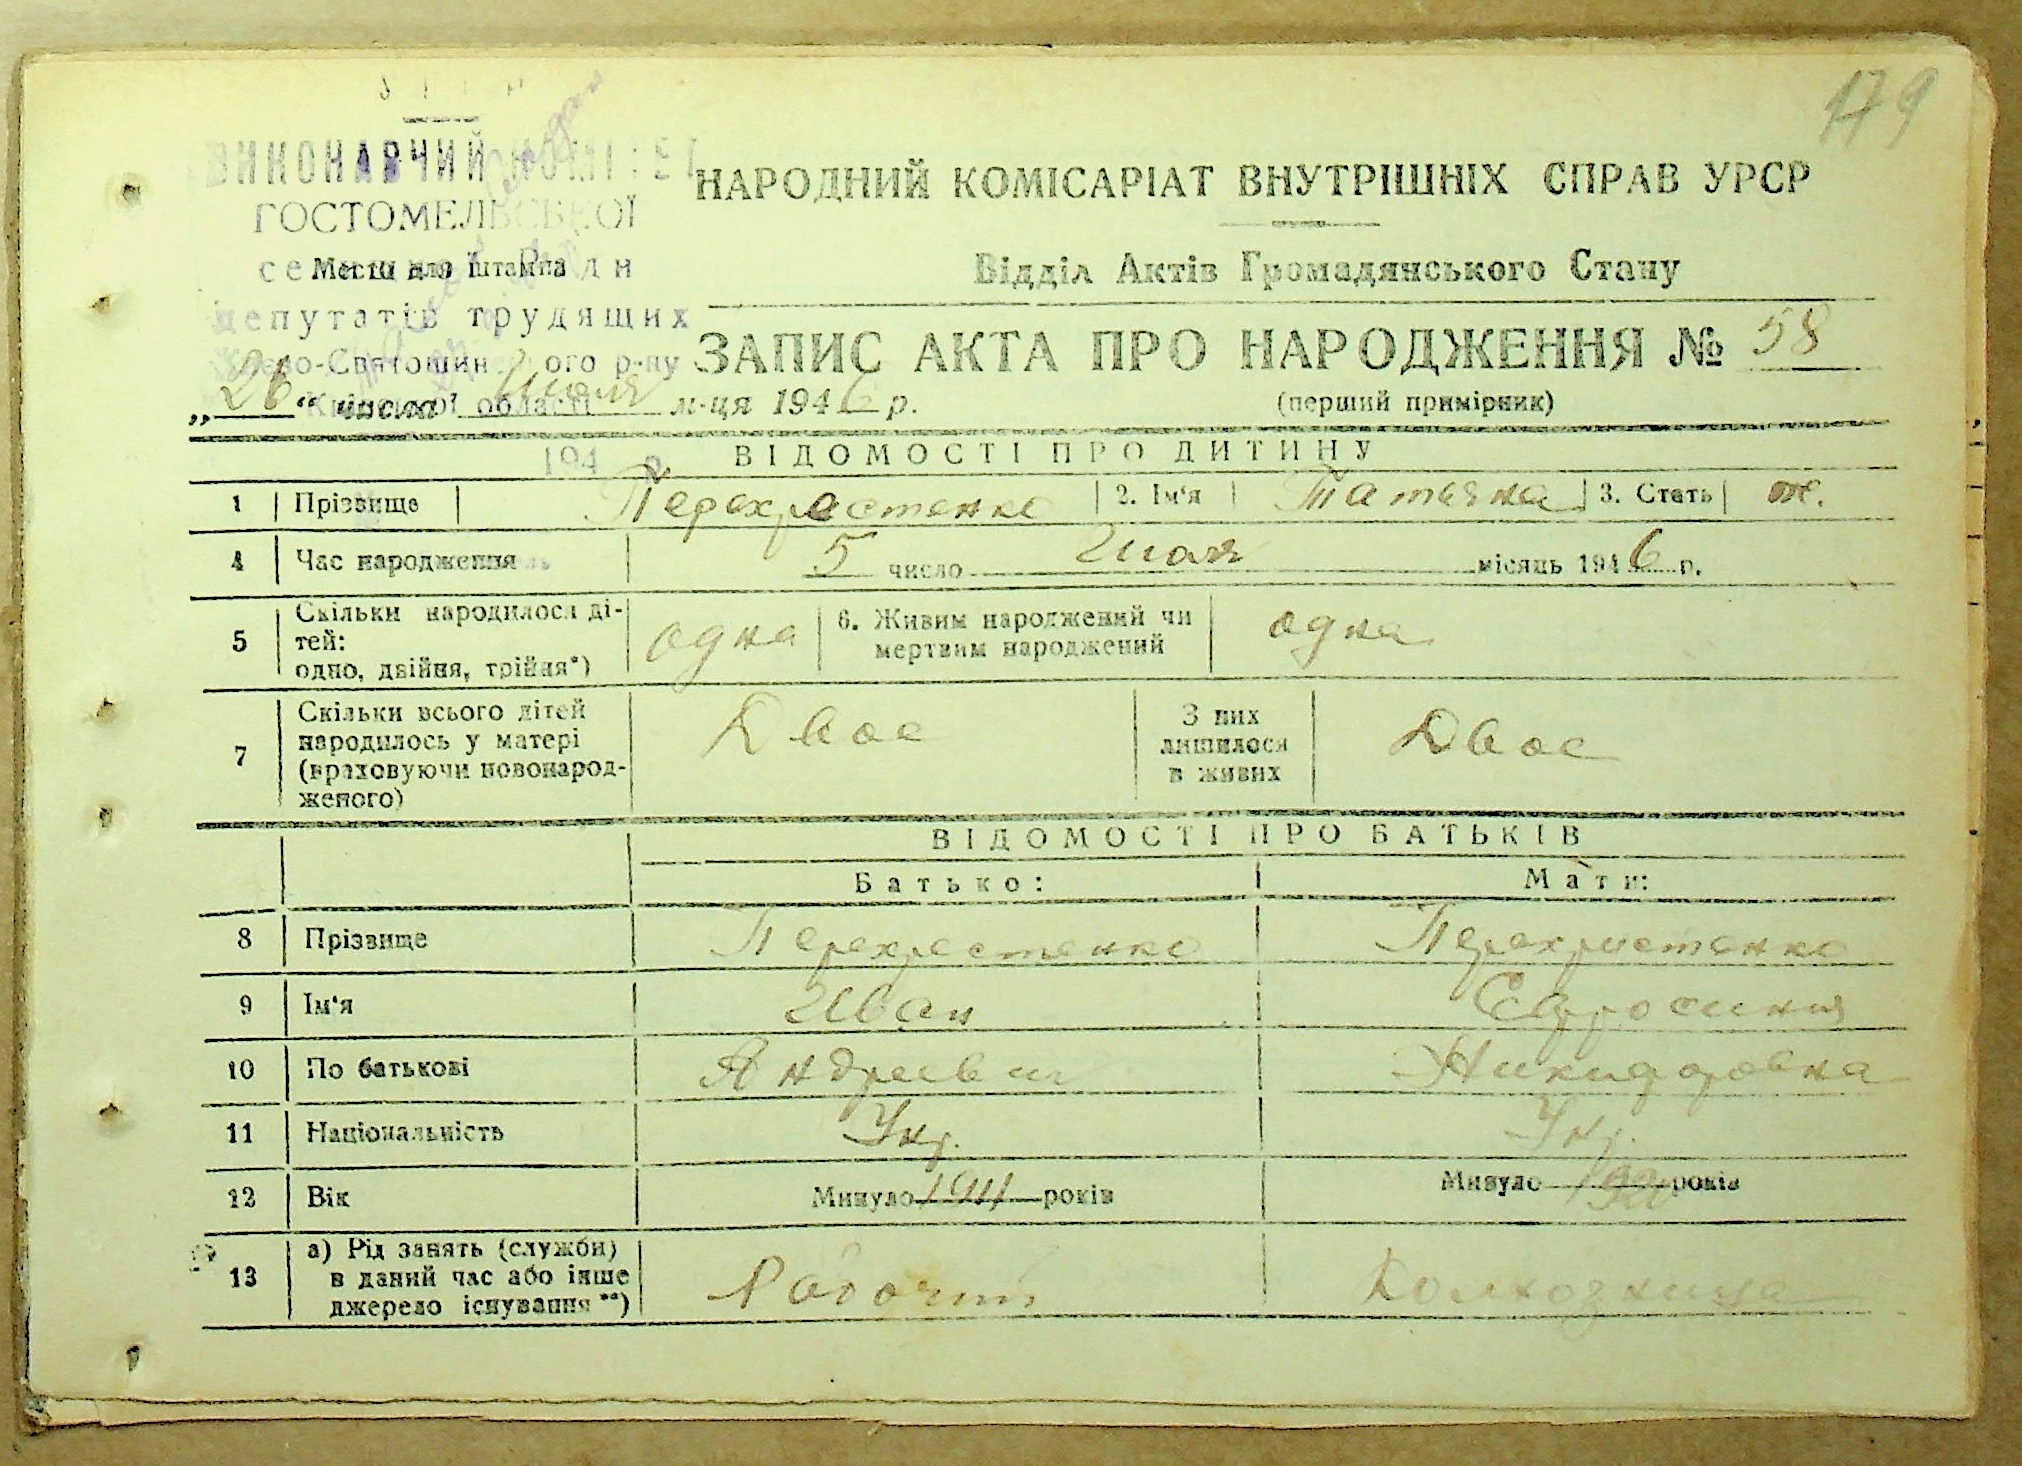 179
ВИКОНАВЧИЙ КОМІТЕТ
ГОСТОМЕЛЬСЬКОЇ
селищної Ради
депутатів трудящих
Києво-Святошин ого р-ну
Київської області
194 р.
Місце для штампа
НАРОДНИЙ КОМІСАРІАТ ВНУТРІШНІХ СПРАВ УРСР
Відділ Актів Громадянського Стану
ЗАПИС АКТА ПРО НАРОДЖЕННЯ № 58
„ 26 “ числа Июля м-ця 1946 р.
(перший примірник)
ВІДОМОСТІ ПРО ДИТИНУ
1 Прізвище Перехрестенко 2. Ім'я Татьяна 3. Стать ж.
4 Час народження 5 число місяць 1946 р.
5 Скільки народилося ді-
тей:
одно, двійня, трійня*) одна
6. Живим народжений чи
мертвим народжений одна
7 Скільки всього дітей
народилось у матері
(враховуючи новонарод-
женого) Двое
З них
лишилося
в живих Двое
ВІДОМОСТІ ПРО БАТЬКІВ
Батько: Мати:
8 Прізвище Перехрестенко Перехрестенко
9 Ім'я Иван Евфросиния
10 По батькові Андреевич
11 Національність Укр. Укр.
12 Вік Минуло 1911 років Минуло років
13 а) Рід занять (служби)
в даний час або інше
джерело існування**) Рабочий Колхозница